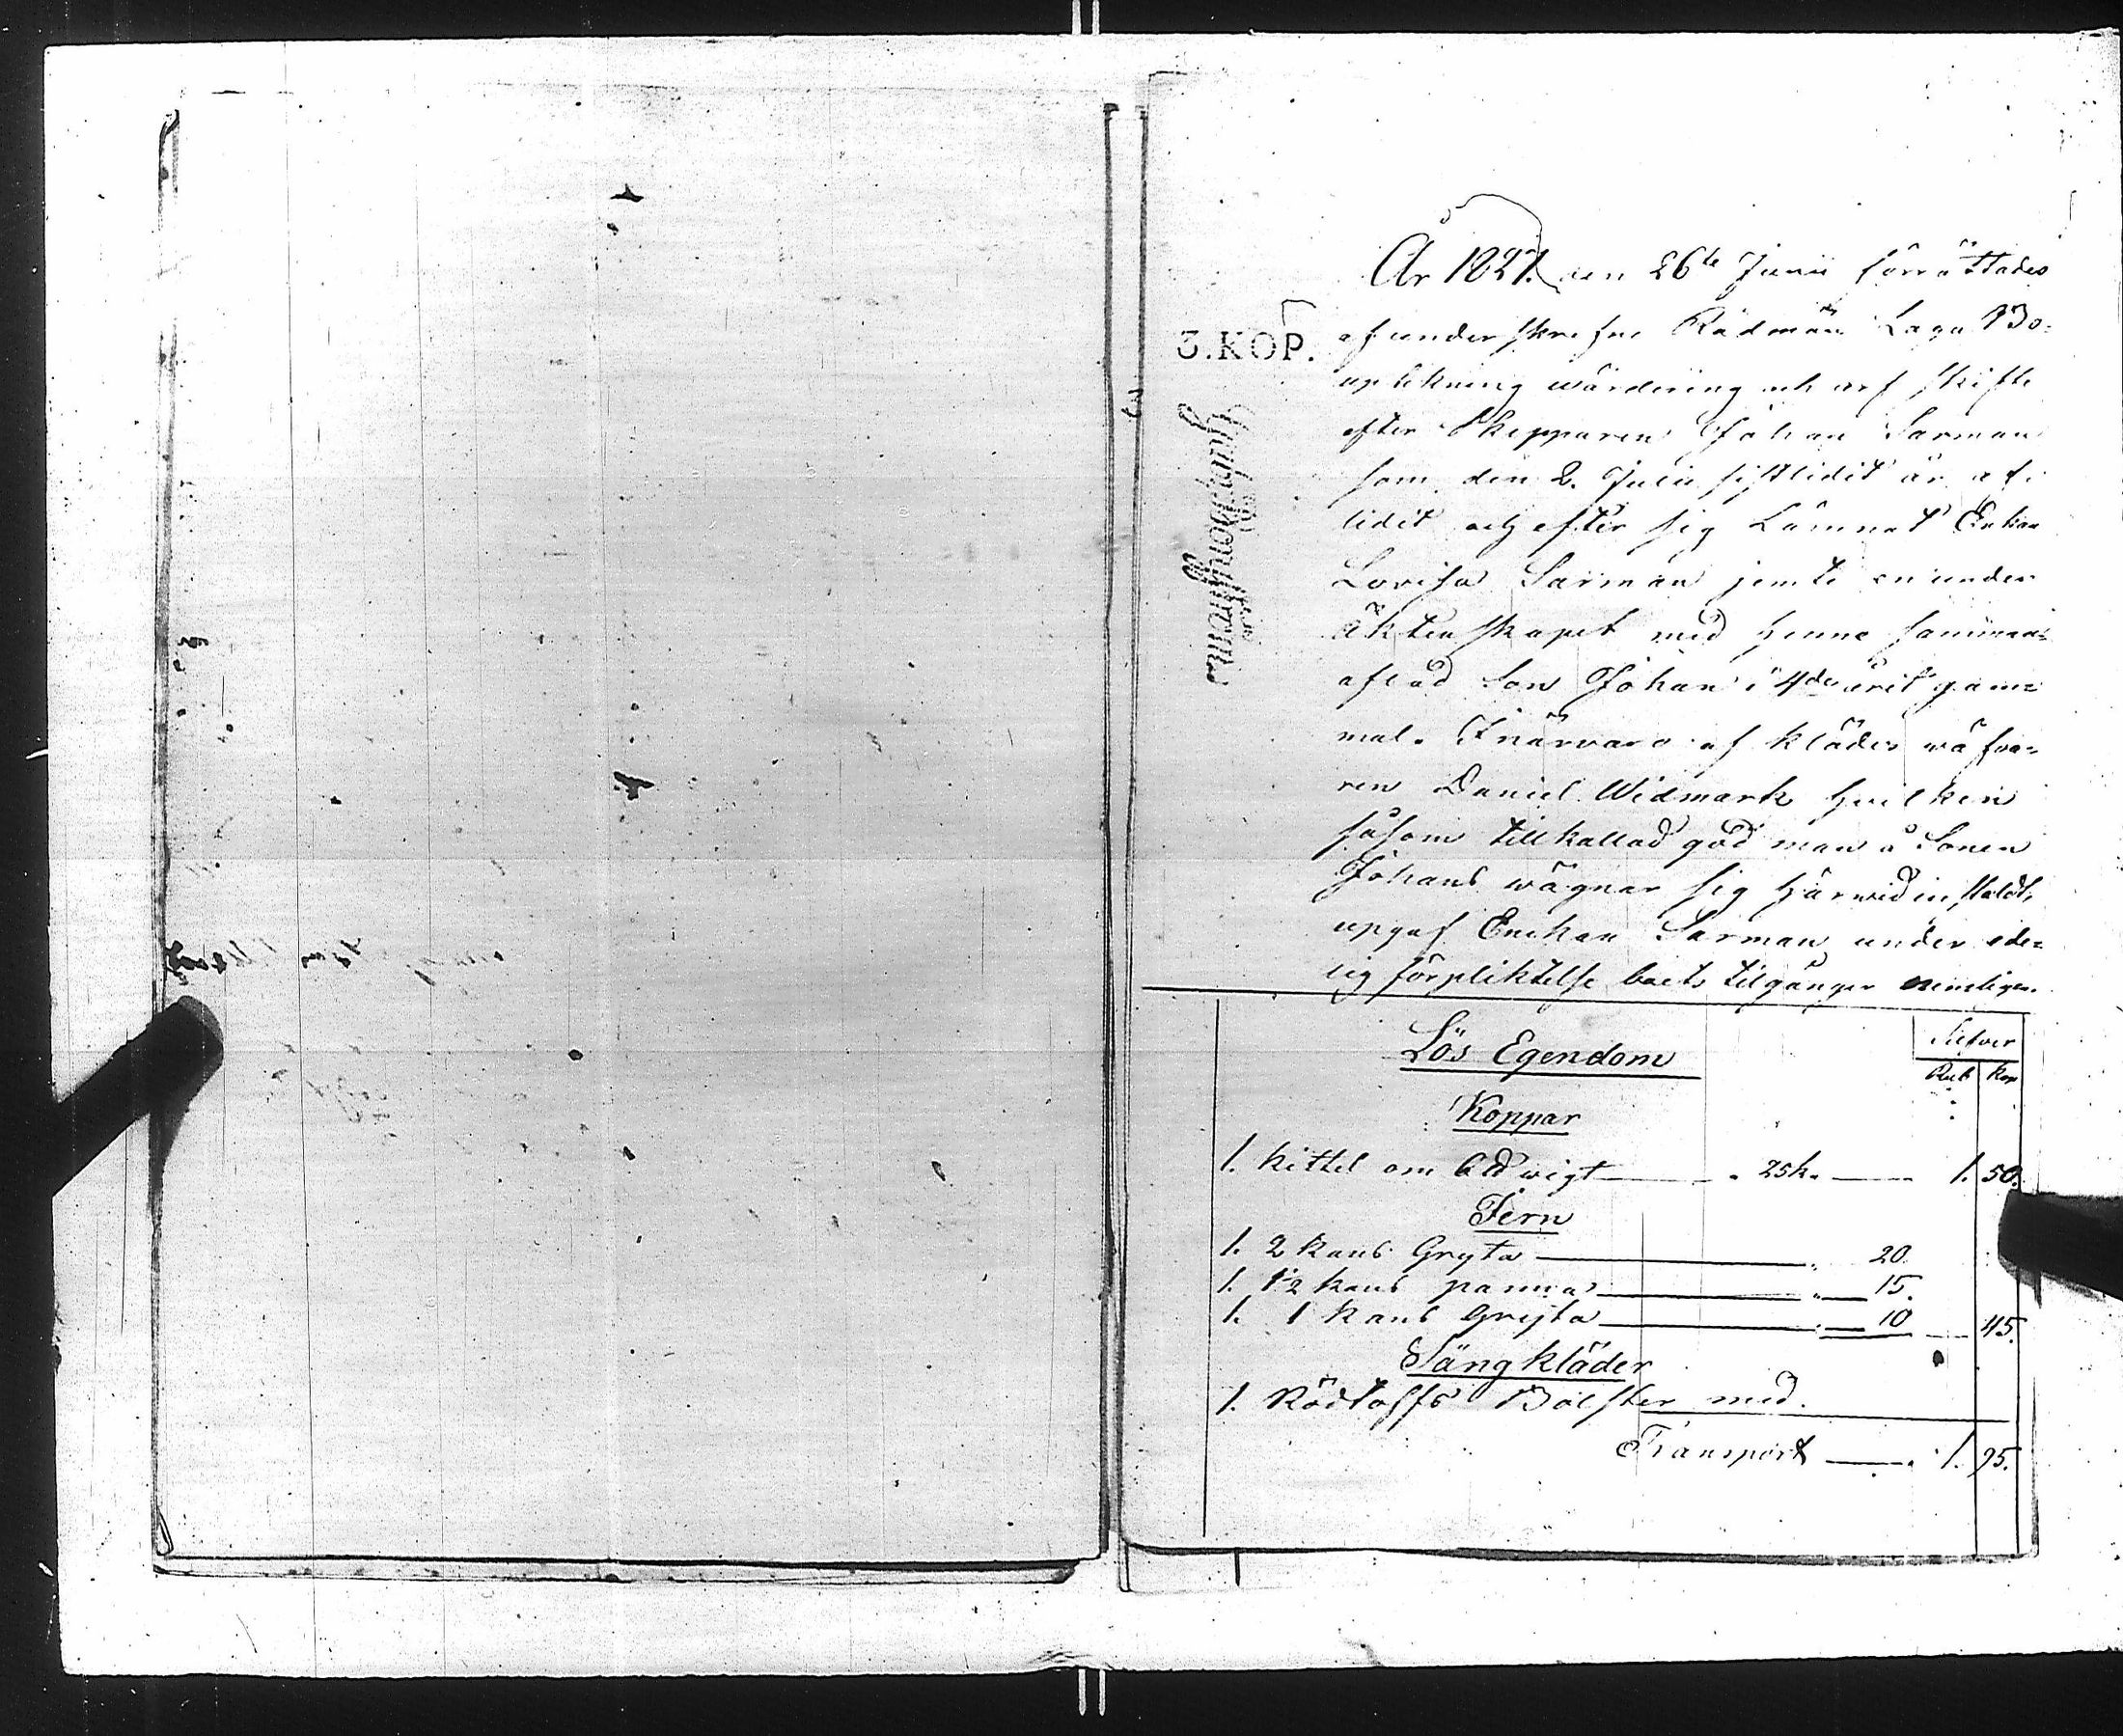 År 1827. den 26te Junii förrättades
af underskrefne Rådmän Laga Bo-
uptekning wärdering och arf skifte
efter Skepparen Johan Sarman
som den 2. Julii sistlidit år afi
lidit och efter sig Lämnat Enkan
Lovisa Sarman jemte en under
äktenskapet med henne samman-
aflad Son Johan i 4de årit gam-
mal. I närvaro af klädes wäfva-
ren Daniel Widmark hvilken
såsom tillkallad god man å Sonen
Johans wägnar sig härwid instäldt,
upgaf Enckan Sarman under ede-
lig förpliktelse boets tilgångar nemligen.
3.KOP.
Lös Egendom
Silfver
Rub Kop
Koppar
1. kittel om 6 ℔ wigt 25k. 1. 50.
Jern
1. 2 kans Gryta 20.
1. 1/2 kans panna 15.
1. 1 kans Gryta 10 45.
Säng kläder
1. Rödtoffs Bolster med.
Transport 1. 95.